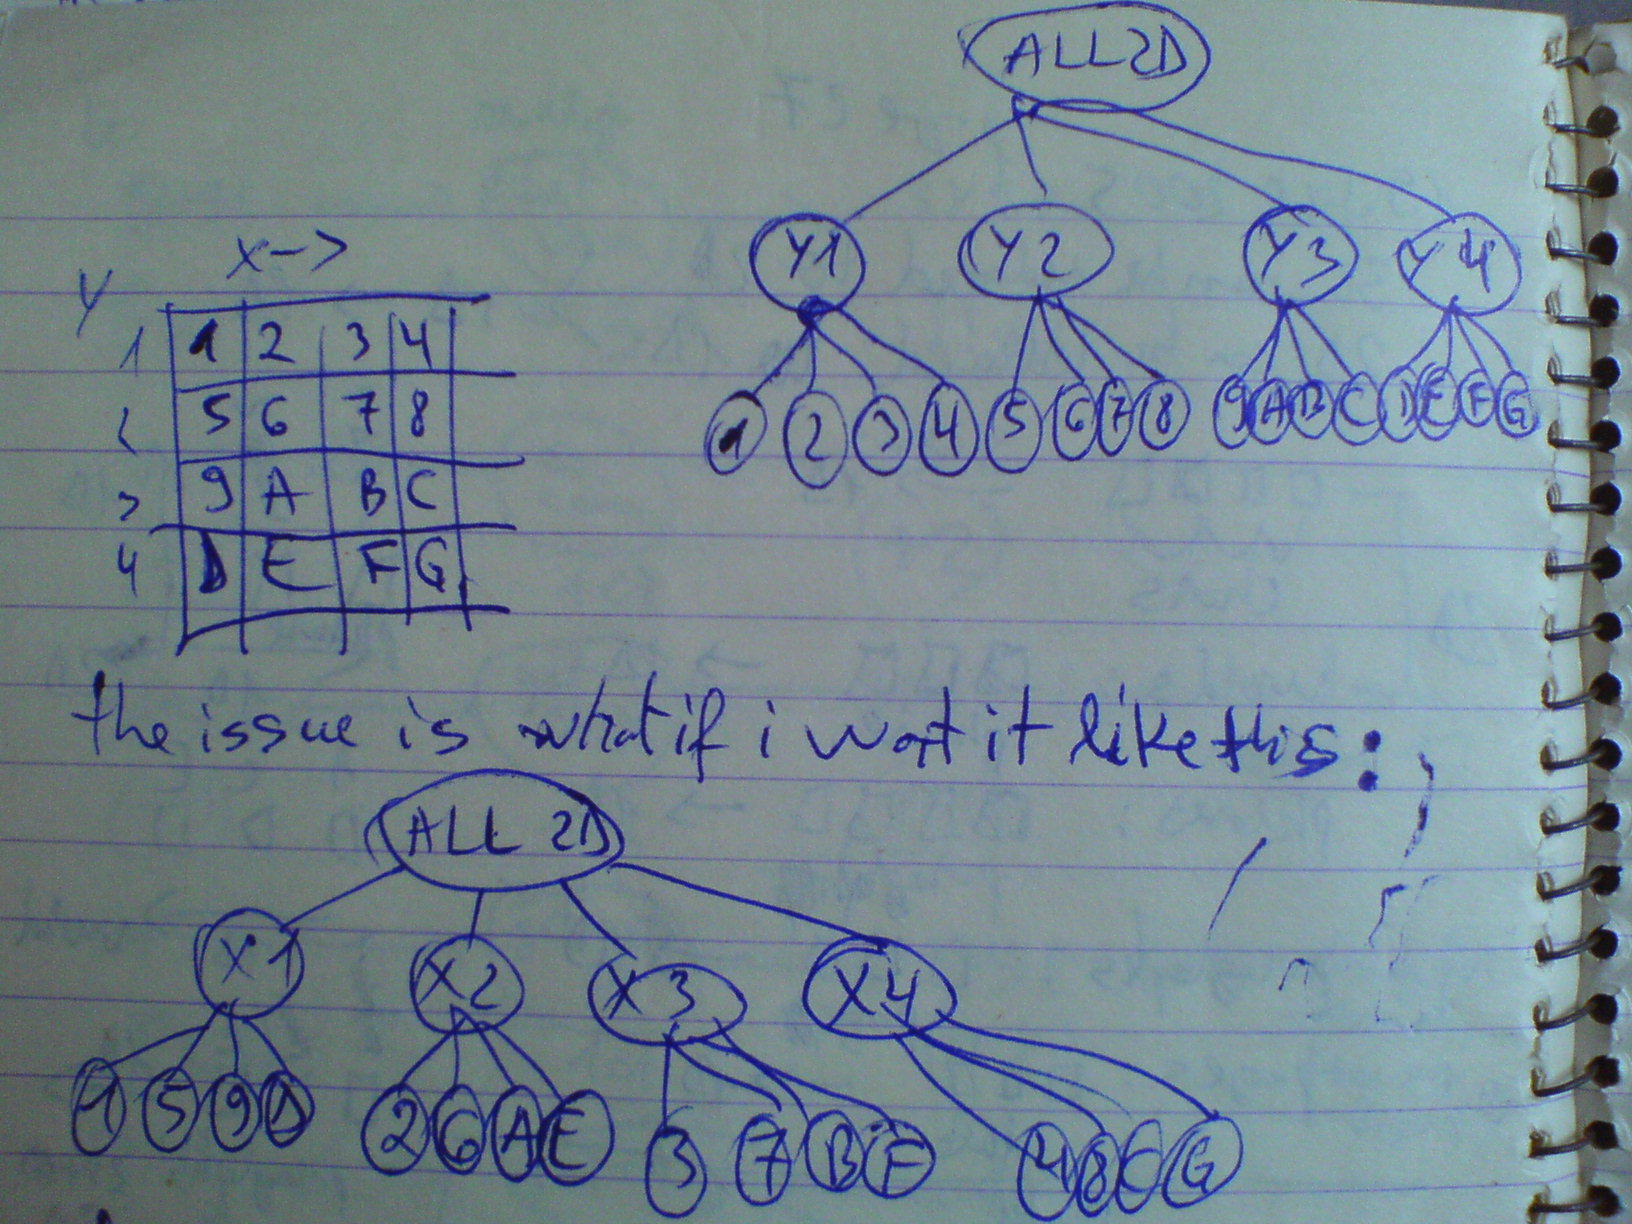 ALL 2D
Y1 Y2 Y3 Y4
1 2 3 4 5 6 7 8 9 A B C D E F G
X->
Y
1 1 2 3 4
2 5 6 7 8
3 9 A B C
4 D E F G
the issue is what if i want it like this:
ALL 2D
X1 X2 X3 X4
1 5 9 D 2 6 A E 3 7 B F 4 8 C G